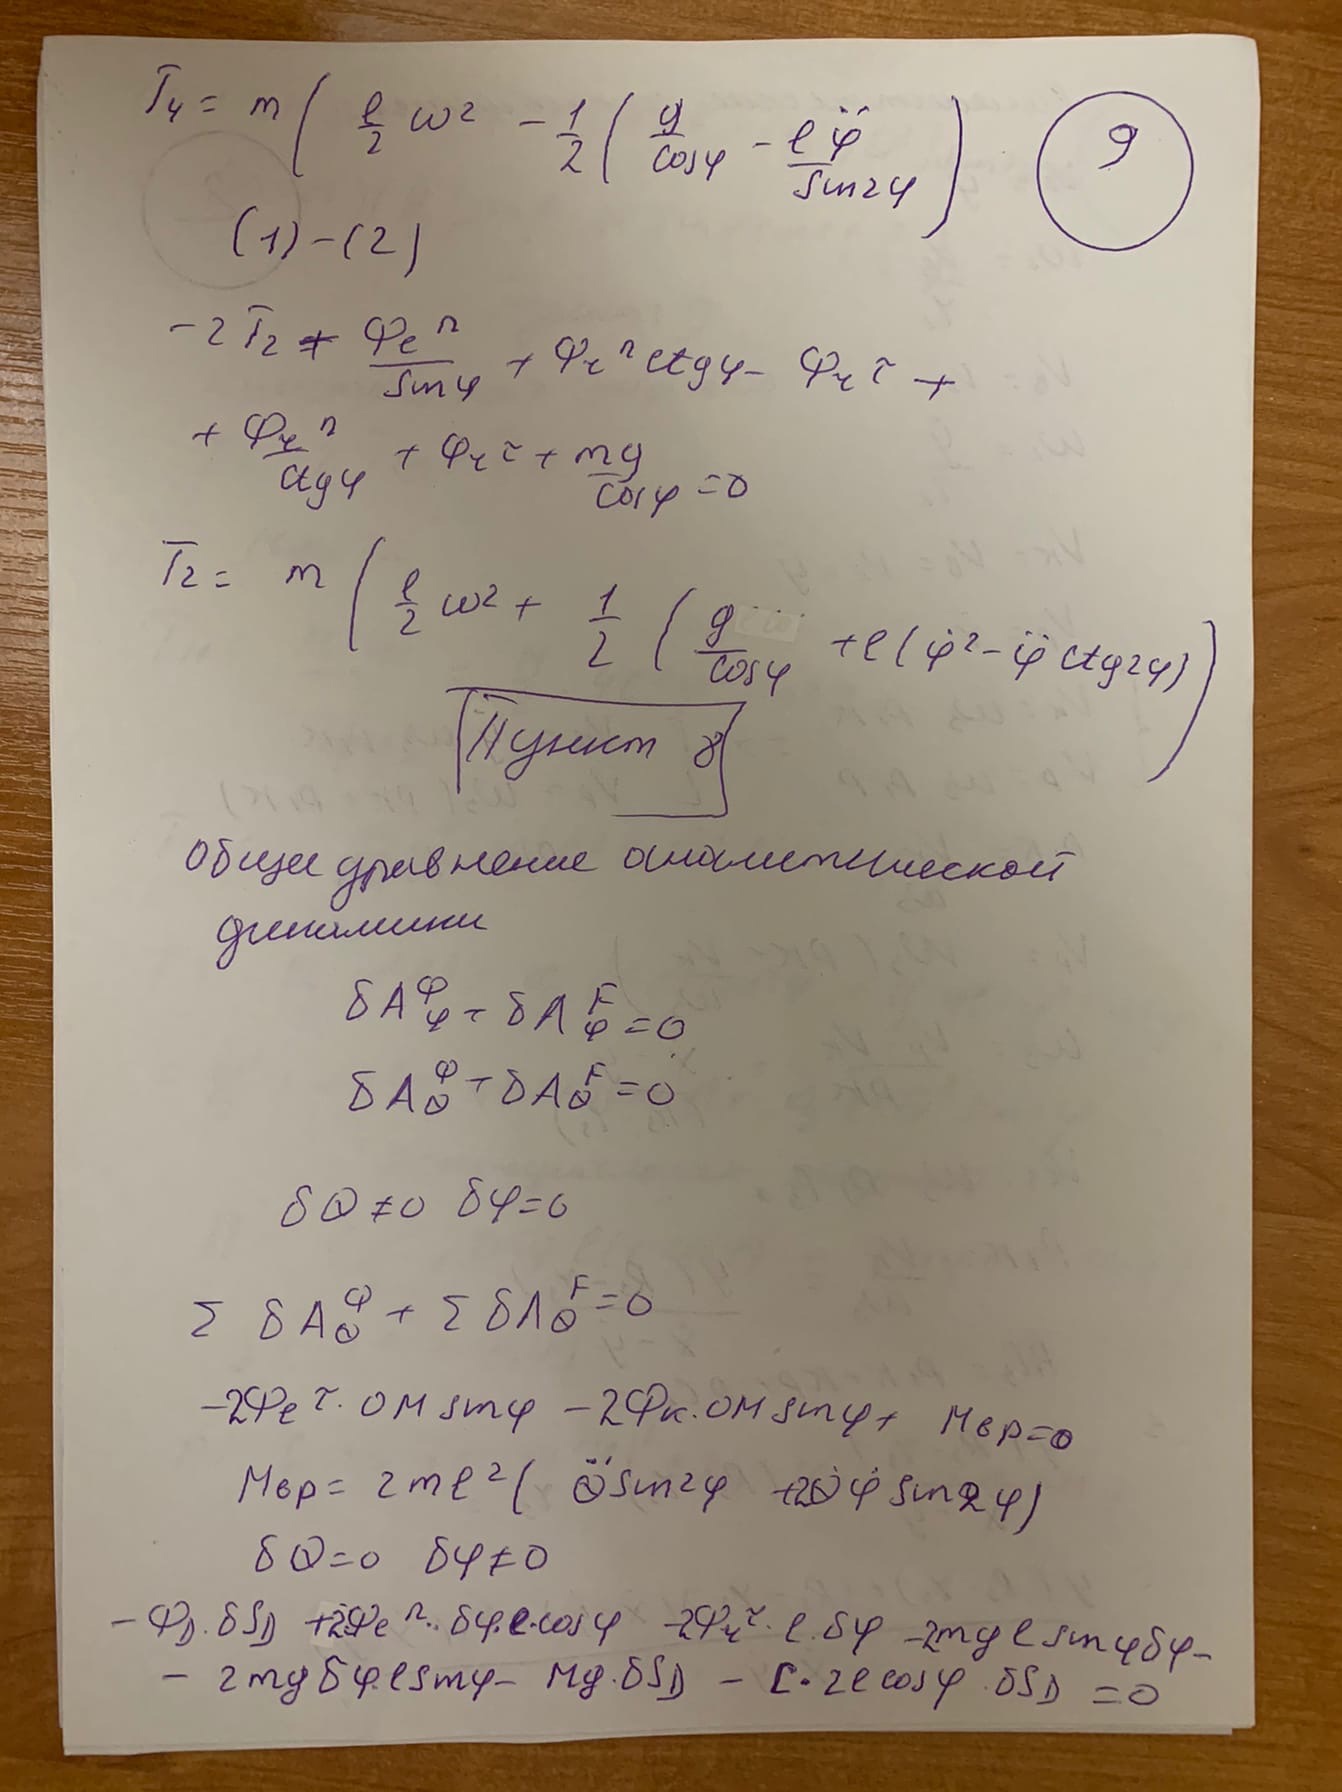 T̄₄ = m ( ℓ/2 ω² - 1/2 ( g/cosφ - ℓφ̈/sin2φ )
9
(1)-(2)
-2T̄₂ + Φeⁿ/sinφ + Φrⁿ ctgφ - Φr^τ +
+ Φrⁿ/ctgφ + Φr^τ + mg/cosφ = 0
T̄₂ = m ( ℓ/2 ω² + 1/2 ( g/cosφ + ℓ(φ̇² - φ̈ ctg2φ) )
Пункт 8
Общее уравнение аналитической
динамики
δA^Φ_φ + δA^F_φ = 0
δA^Φ_θ + δA^F_θ = 0
δθ ≠ 0 δφ = 0
Σ δA^Φ_θ + Σ δA^F_θ = 0
-2Φe^τ · OM sinφ - 2Φк · OM sinφ + Mвр = 0
Mвр = 2mℓ² ( θ̈ sin2φ + 2θ̇ φ̇ sin2φ )
δθ = 0 δφ ≠ 0
- Φ_D · δS_D + 2Φeⁿ · δφ · ℓ · cosφ - 2Φr^τ · ℓ · δφ - 2mgℓ sinφ δφ -
- 2mg δφ ℓ sinφ - Mg · δS_D - C · 2ℓ cosφ · δS_D = 0